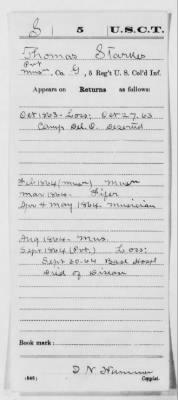 S 5 U.S.C.T.
Thomas Starkes
Pvt
Musn, Co. G, 5 Reg't U. S. Col'd Inf.
Appears on Returns as follows:
Oct 1863. Loss: Oct 27.63
Camp Del. O. Deserted
Feb 1864 (musn) Musn
Mar 1864. Fifer
Apr & May 1864. Musician
Aug 1864. Mus.
Sept 1864 (Pvt.) Loss:
Sept 20.64 Base Hospl
Died of Disease
Book mark:
(546) Copyist.